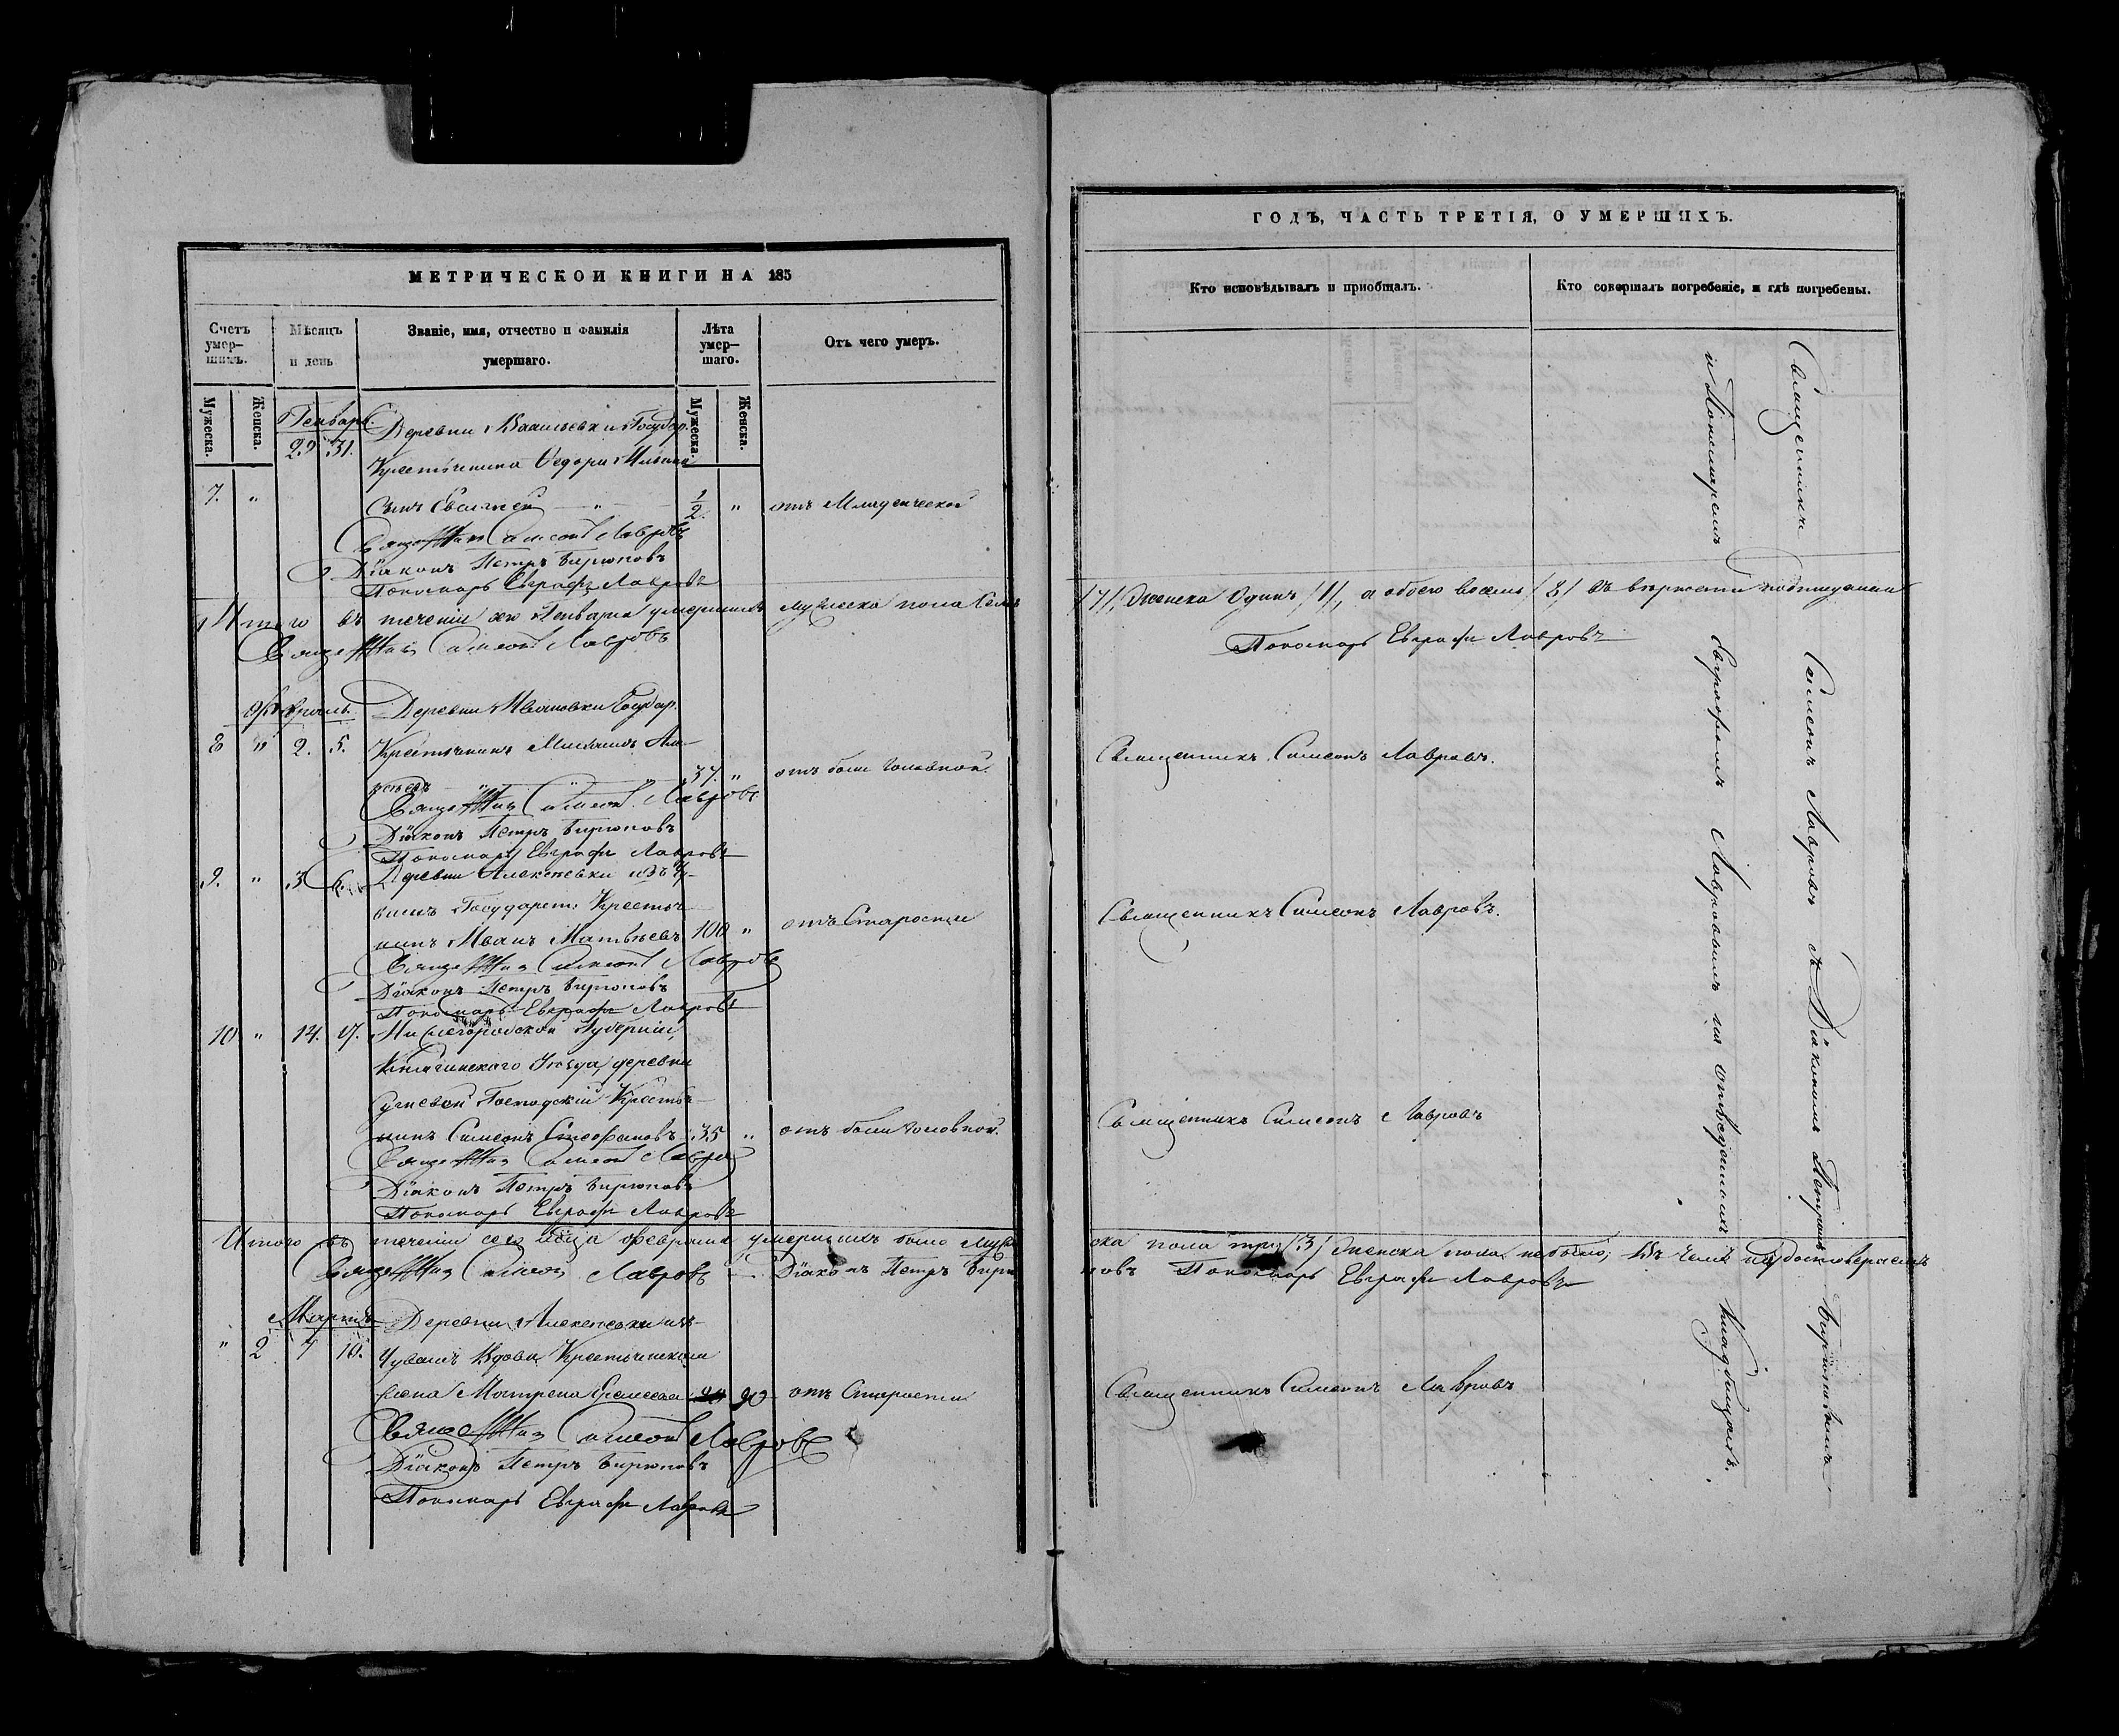 МЕТРИЧЕСКОИ КНИГИ НА 185
Счетъ умер-шихъ.
Мѣсяцъ и день
Званіе, имя, отчество и фамилія умершаго.
Лѣта умер-шаго.
Отъ чего умеръ.
Мужеска.
Женска.
Мужеска.
Женска.
Генварь.
29 31.
Деревни Государ.
Крестьянина Ѳедора Ильина
7. " сынъ 1/2. " отъ Младенческой
Симеонъ Лавровъ
Діаконъ Петръ Бирюковъ
Пономарь Евграфъ Лавровъ
Итого въ теченіи сего Генваря умершихъ мужеска пола Семь
Симеонъ Лавровъ
Февраль.
Деревни Ивановки Государ.
8 " 2. 5. Крестьянинъ
37. " отъ боли головной.
Симеонъ Лавровъ
Діаконъ Петръ Бирюковъ
Пономарь Евграфъ Лавровъ
9. " 3 6. Деревни Алексѣевки изъ Чу-
вашъ Государст: Крестья-
нинъ Иванъ Матвѣевъ 100 " отъ Старости
Симеонъ Лавровъ
Діаконъ Петръ Бирюковъ
Пономарь Евграфъ Лавровъ
10 " 14. 17. Нижегородской Губерніи,
Княгининскаго Уѣзда, деревни
Господскій Крестья-
нинъ Симеонъ Стефановъ 35 " отъ боли головной.
Симеонъ Лавровъ
Діаконъ Петръ Бирюковъ
Пономарь Евграфъ Лавровъ
Итого въ теченіи сего Февраля умершихъ было Муже
Симеонъ Лавровъ Діаконъ Петръ Бирю
Мартъ
Деревни Алексѣевки изъ
" 2 7 10. Чувашъ Вдова Крестьянская
жена Матрена 90 отъ Старости
Симеонъ Лавровъ
Діаконъ Петръ Бирюковъ
Пономарь Евграфъ Лавровъ
ГОДЪ, ЧАСТЬ ТРЕТІЯ, О УМЕРШИХЪ.
Кто исповѣдывалъ и пріобщалъ.
Кто совершалъ погребеніе, и гдѣ погребены.
/7/, Женска Одинъ /1/, а обоего восемь /8/ въ вѣрности подписуемся
Пономарь Евграфъ Лавровъ
Священникъ Симеонъ Лавровъ.
Священникъ Симеонъ Лавровъ.
Священникъ Симеонъ Лавровъ
ска пола три /3/ Женска пола небыло; Въ чемъ и удостовѣряемъ
ковъ Пономарь Евграфъ Лавровъ
Священникъ Симеонъ Лавровъ
Священникъ Симеонъ Лавровъ съ Діакономъ Петромъ Бирюковымъ
и Пономаремъ Евграфомъ Лавровымъ на отведенномъ Кладбищѣ.